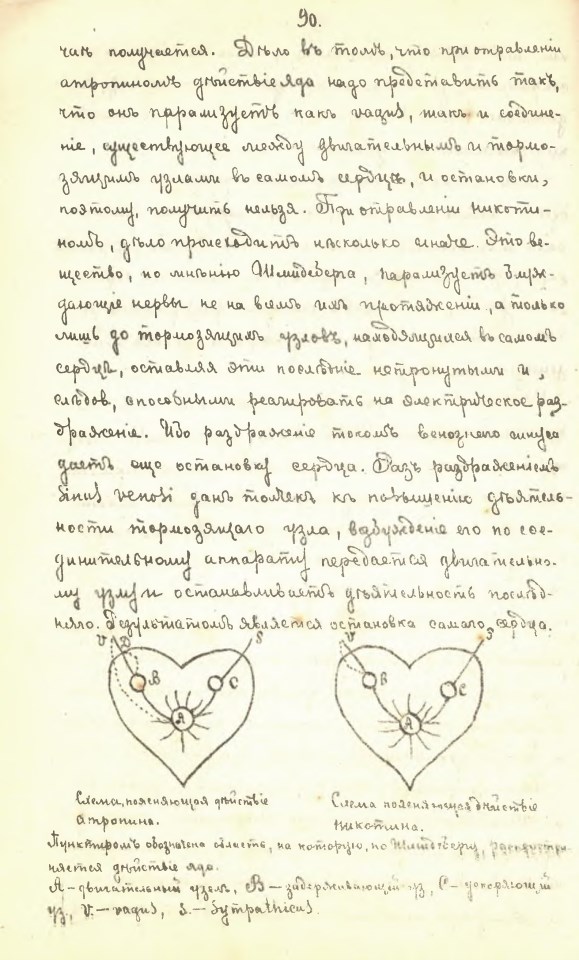 90.
чай получается. Дѣло въ томъ, что при отравленіи
атропиномъ дѣйствіе яда надо представить такъ,
что онъ парализуетъ какъ vagus, такъ и соедине-
ніе, существующее между двигательнымъ и тормо-
зящимъ узлами въ самомъ сердцѣ, и остановки,
поэтому, получить нельзя. При отравленіи никоти-
номъ, дѣло происходитъ нѣсколько иначе. Это ве-
щество, по мнѣнію Шмидеберга, парализуетъ блуж-
дающіе нервы не на всемъ ихъ протяженіи, а только
лишь до тормозящихъ узловъ, находящихся въ самомъ
сердцѣ, оставляя эти послѣдніе нетронутыми и,
слѣдов., способными реагировать на электрическое раз-
драженіе. Ибо раздраженіе токомъ венознаго синуса
даетъ еще остановку сердца. Разъ раздраженіемъ
Sinus venosi данъ толчекъ къ повышенію дѣятель-
ности тормозящаго узла, возбужденіе его по сое-
динительному аппарату передается двигательно-
му узлу и останавливаетъ дѣятельность послѣд-
няго. Результатомъ является остановка самаго сердца.
V D S V S
B C A B C A
Схема, поясняющая дѣйствіе Схема поясняющая дѣйствіе
атропина. никотина.
Пунктиромъ обозначена область, на которую, по Шмидебергу, распростра-
няется дѣйствіе яда.
A – двигательный узелъ, B – задерживающій уз, C – ускоряющій
уз., V. – vagus, S. – Sympathicus.